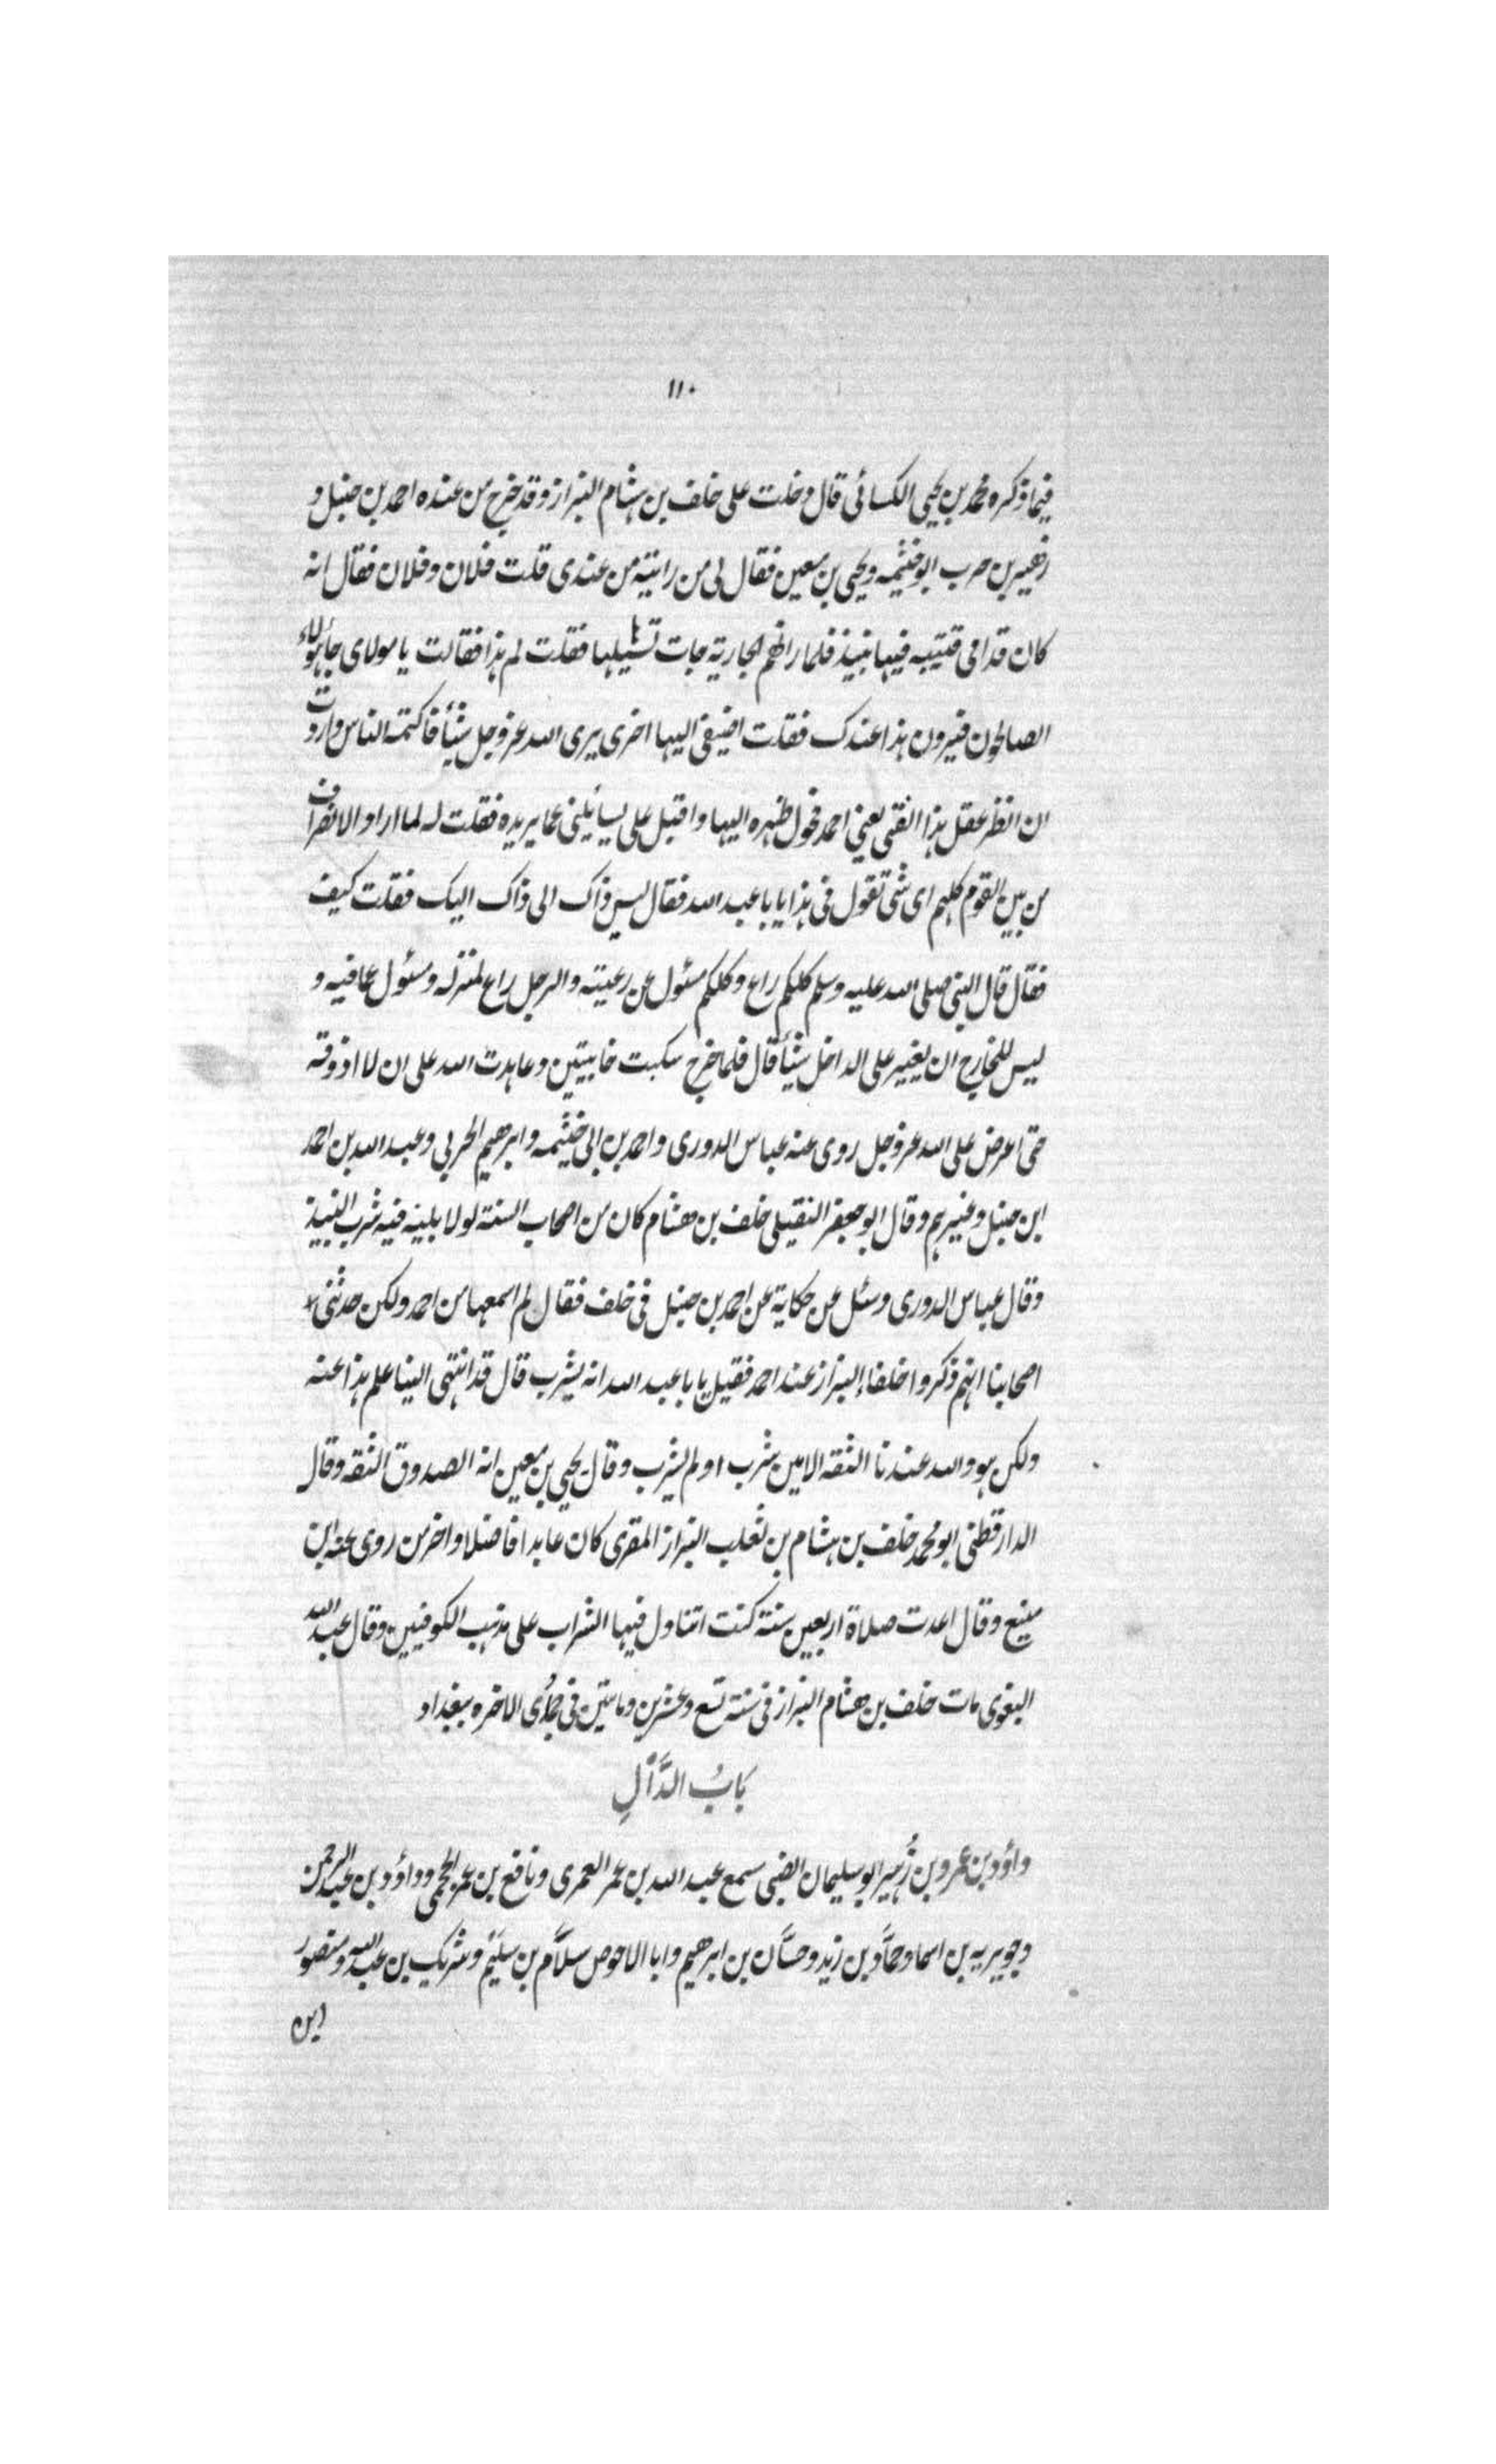 ١١٠
فيما ذكره محمد بن يحيى الكسائى قال دخلت على خلف بن هشام البزاز وقد خرج من عنده احمد بن حنبل و
زهير بن حرب ابو خيثمه ويحيى بن معين فقال لى من رايته من عندى قلت فلان وفلان فقال انه
كان قدامى قنينه فيها نبيذ فلما راتهم الجارية جات تشيلها فقلت لم هذا فقالت يا مولاى جا هؤلاء
الصالحون فيرون هذا عندك فقلت اضيفى اليها اخرى يرى الله عز وجل شيأ فاكتمه الناس واردت
ان انظر عقل هذا الفتى يعنى احمد فحول ظهره اليها واقبل على يسائلنى عما يريده فقلت له لما اراد الانصراف
من بين القوم كلهم اى شى تقول فى هذا يا با عبد الله فقال ليس ذاك الى ذاك اليك فقلت كيف
فقال قال النبى صلى الله عليه وسلم كلكم راع وكلكم مسئول عن رعيته والرجل راع لمنزله ومسئول عما فيه و
ليس للخارج ان يغير على الداخل شيأ قال فلما خرج سكبت خابيتين وعاهدت الله على ان لا اذوقه
حتى اعرض على الله عز وجل روى عنه عباس الدورى واحمد بن ابى خيثمه وابرهيم الحربى وعبد الله بن احمد
ابن حنبل وغيرهم وقال ابو جعفر النفيلى خلف بن هشام كان من اصحاب السنة لولا بلية فيه شرب النبيذ
وقال عباس الدورى وسئل عن حكاية عن احمد بن حنبل فى خلف فقال لم اسمعها من احمد ولكن حدثنى
اصحابنا انهم ذكروا خلفا البزاز عند احمد فقيل يا با عبد الله انه يشرب قال قد انتهى الينا علم هذا عنه
ولكن هو والله عندنا الثقه الامين شرب او لم يشرب وقال يحيى بن معين انه الصدوق الثقه وقال
الدارقطنى ابو محمد خلف بن هشام بن ثعلب البزاز المقرى كان عابدا فاضلا واخر من روى عنه ابن
منيع وقال اعدت صلاة اربعين سنة كنت اتناول فيها الشراب على مذهب الكوفيين وقال عبد الله
البغوى مات خلف بن هشام البزاز فى سنة تسع وعشرين ومايتين فى جمادى الاخره ببغداد
بَابُ الدَّالِ
داؤد بن عمرو بن زُهير ابو سليمان الضبى سمع عبد الله بن عمر العمرى ونافع بن عمر الجمحى وداؤد بن عبد الرحمن
وجويريه بن اسما وحمَّاد بن زيد وحسَّان بن ابرهيم وابا الاحوص سلَّام بن سليم وشريك بن عبد الله ومنصور
ابن